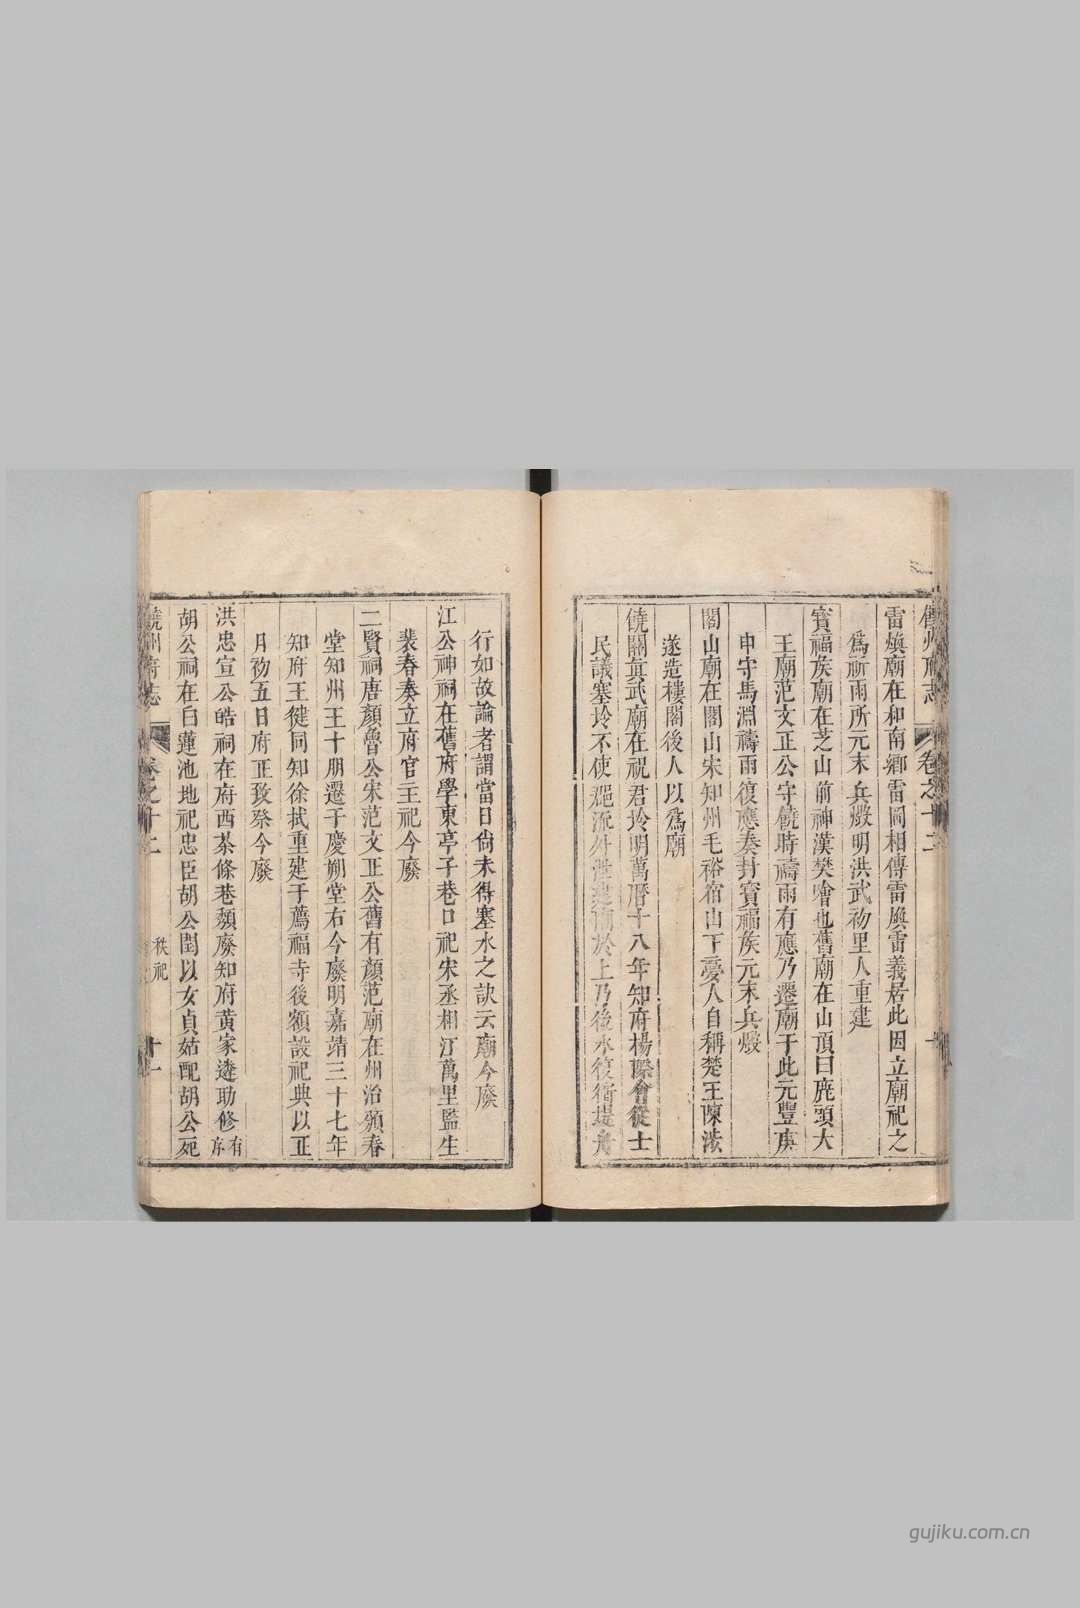 饒州府志 卷之十二
雷煥廟在和南鄉雷岡相傳雷煥雷義居此因立廟祀之
爲祈雨所元末兵燬明洪武初里人重建
寳福侯廟在芝山前神漢樊噲也舊廟在山頂曰鹿頭大
王廟范文正公守饒時禱雨有應乃遷廟于此元豐庚
申守馬淵禱雨復應奏封寳福侯元末兵燬
閣山廟在閣山宋知州毛裕宿山下夢人自稱楚王陳涉
遂造樓閣後人以爲廟
饒關真武廟在祝君坽明萬曆十八年知府楊際會從士
民議塞坽不使 流外泄建廟於上乃後水復衝堤舟
行如故論者謂當日尙未得塞水之訣云廟今廢
江公神祠在舊府學東亭子巷口祀宋丞相江萬里監生
裴春奏立府官主祀今廢
二賢祠唐顏魯公宋范文正公舊有顏范廟在州治頖春
堂知州王十朋遷于慶朔堂右今廢明嘉靖三十七年
知府王健同知徐拭重建于薦福寺後額設祀典以正
月初五日府正致祭今廢
洪忠宣公皓祠在府西茶條巷頽廢知府黄家遴助修有序
胡公祠在白蓮池地祀忠臣胡公閏以女貞姑配胡公死
饒州府志 卷之十二 秩祀 十一
gujiku.com.cn